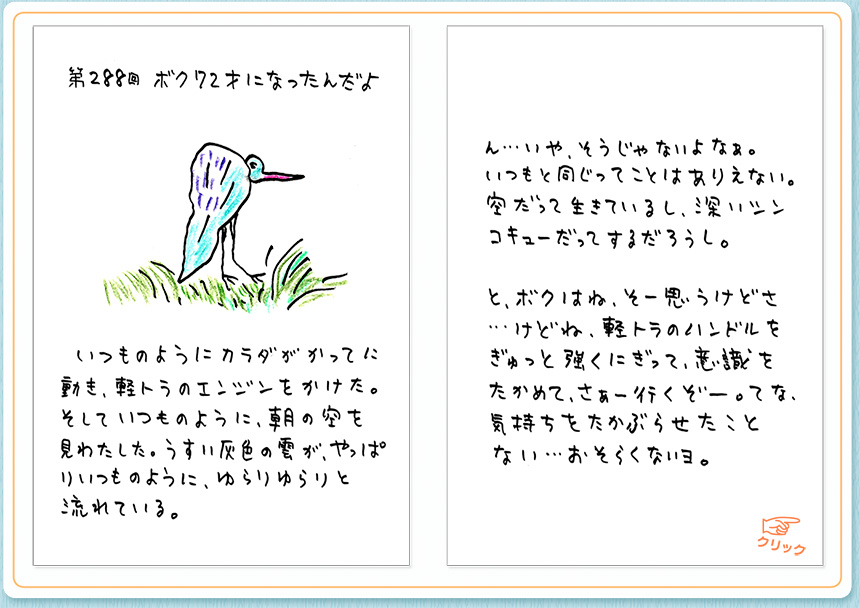 第288回 ボク72才になったんだよ
いつものようにカラダがかってに
動き、軽トラのエンジンをかけた。
そしていつものように、朝の空を
見わたした。うすい灰色の雲が、やっぱ
りいつものように、ゆらりゆらりと
流れている。
ん…いや、そうじゃないよなぁ。
いつもと同じってことはありえない。
空だって生きているし、深いシン
コキューだってするだろうし。
と、ボクはね、そー思うけどさ
…けどね、軽トラのハンドルを
ぎゅっと強くにぎって、意識を
たかめて、さぁー行くぞー。てな、
気持ちをたかぶらせたこと
ない…おそらくないヨ。
クリック